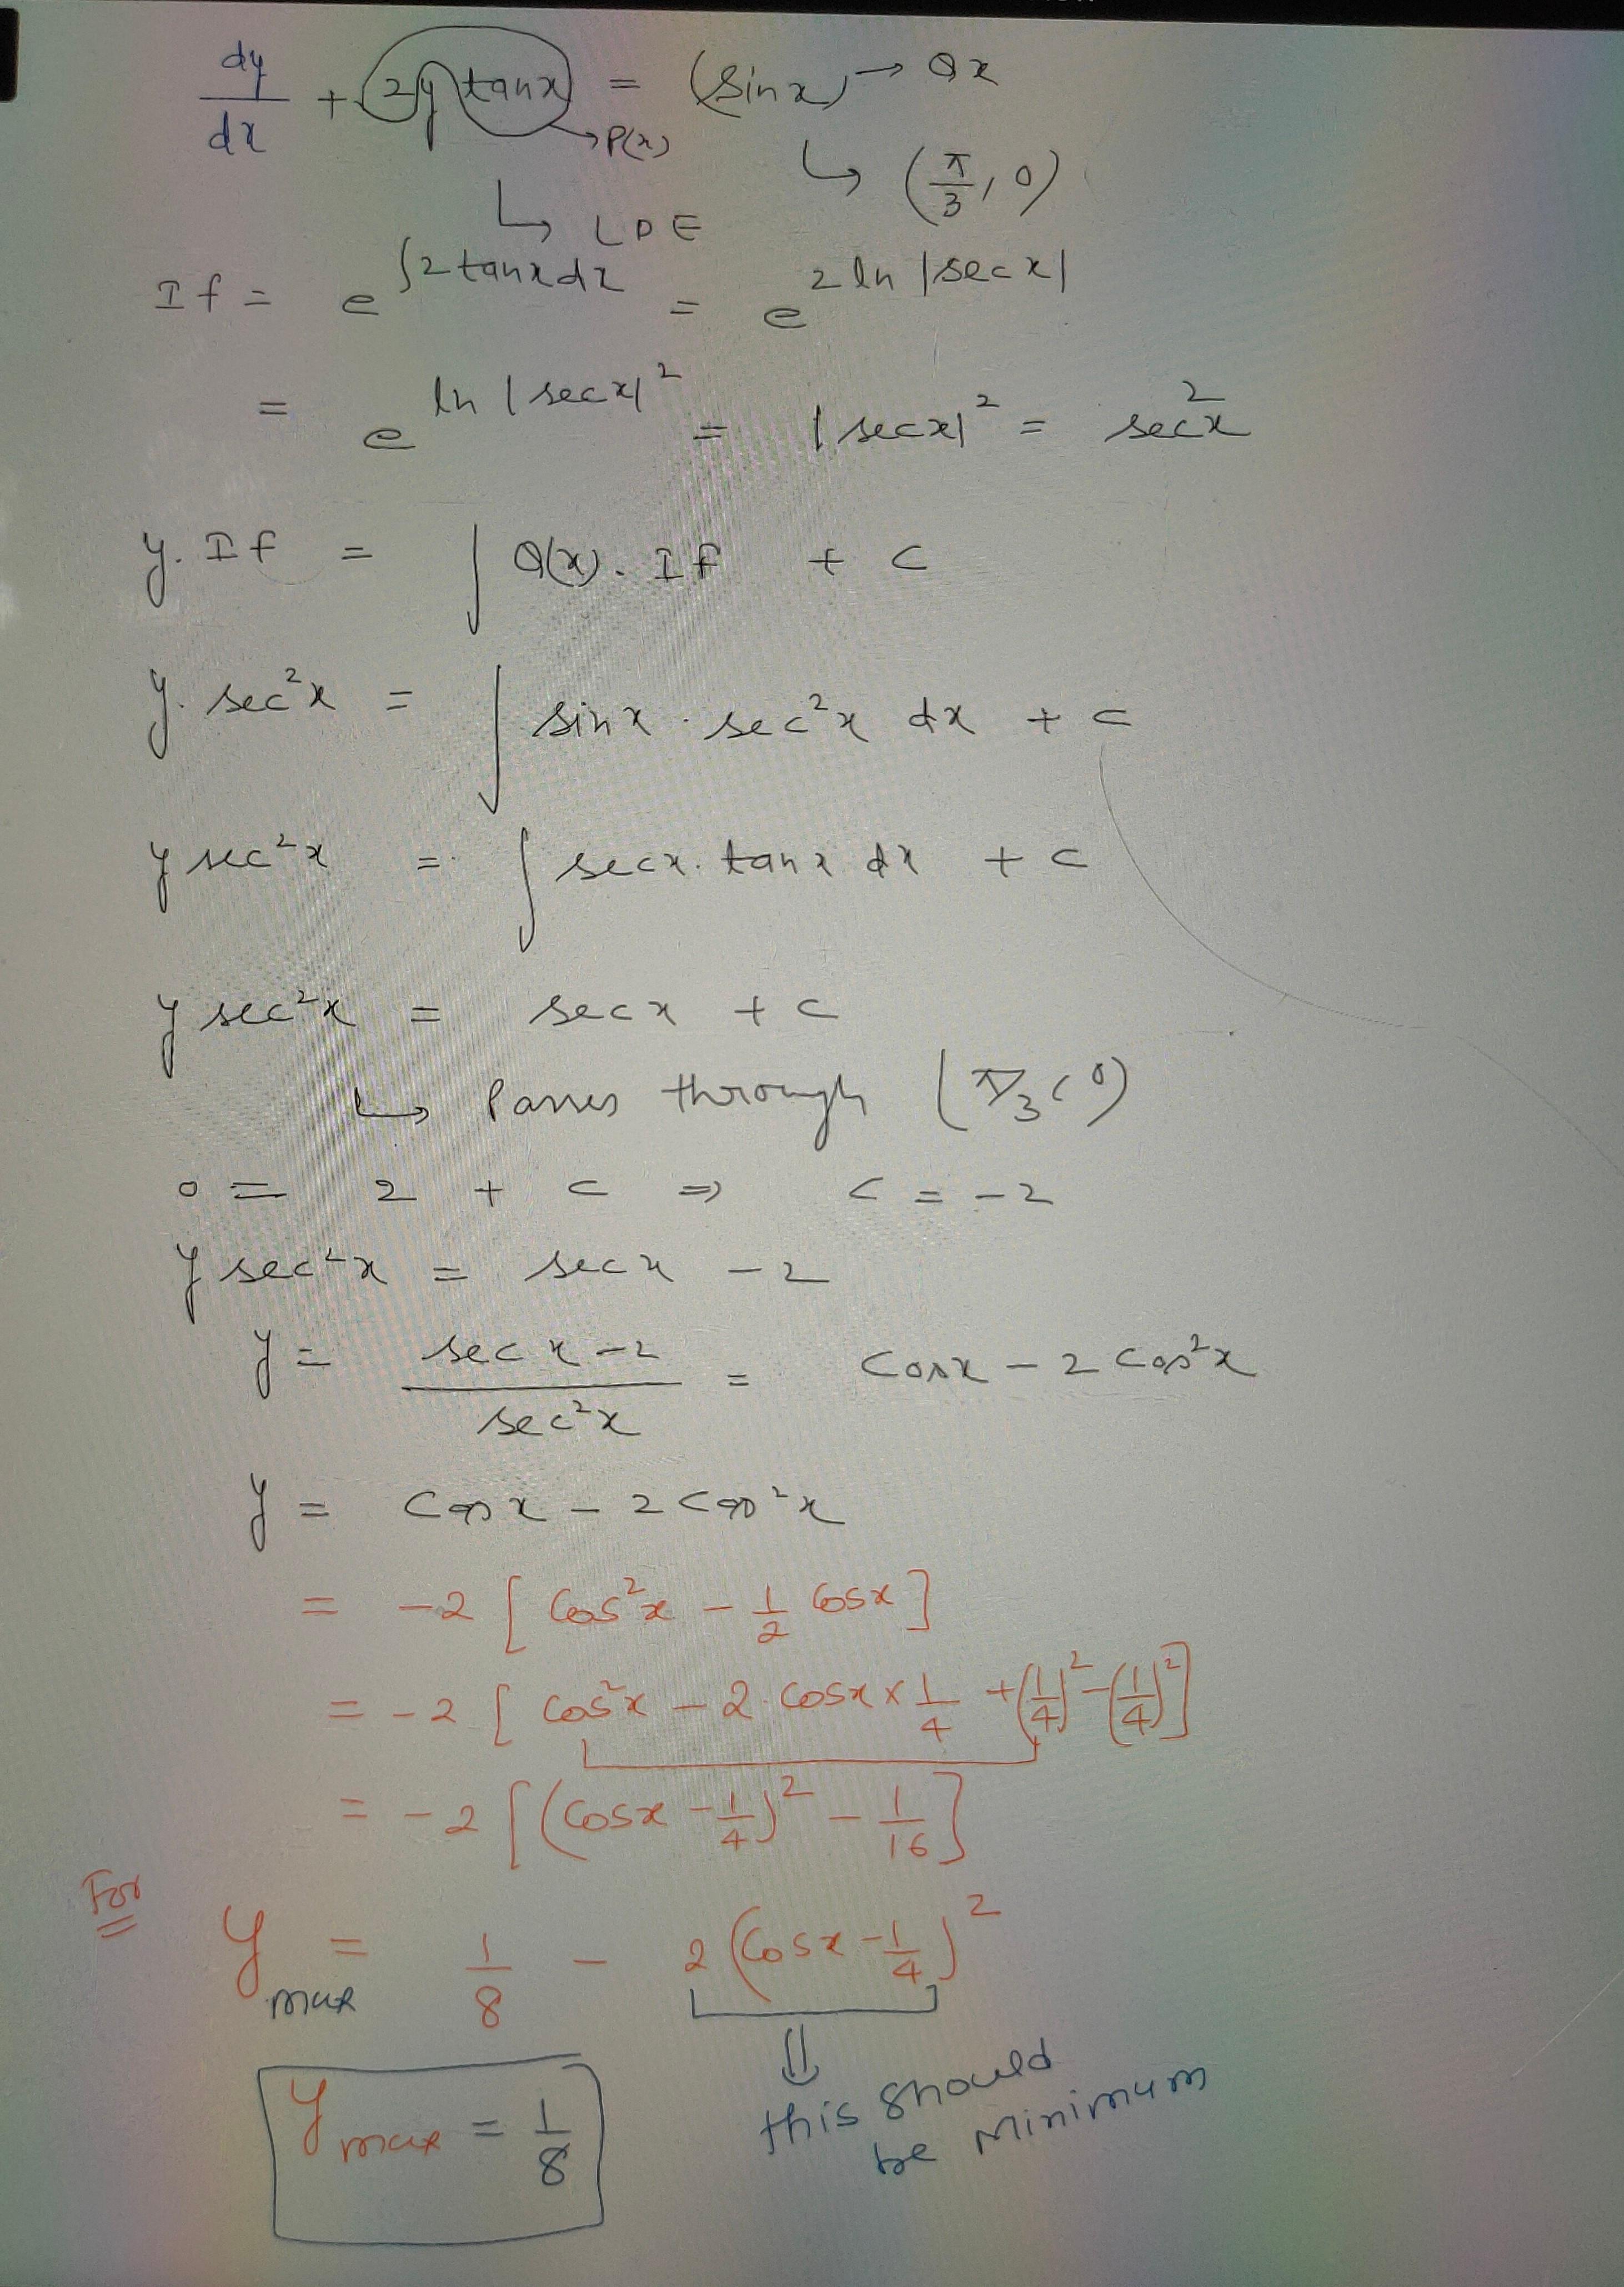 dy/dx + 2y tanx = (sinx) → Qx
→ P(x)
↳ (π/3, 0)
↳ LDE
If = e^∫2tanxdx = e^2 ln|secx|
= e^ln|secx|² = |secx|² = sec²x
y. If = ∫ Q(x). If + c
y. sec²x = ∫ sinx . sec²x dx + c
y sec²x = ∫ secx. tanx dx + c
y sec²x = secx + c
↳ Passes through (π/3, 0)
0 = 2 + c ⇒ c = -2
y sec²x = secx - 2
y = (secx - 2)/sec²x = cosx - 2cos²x
y = cosx - 2cos²x
= -2 [cos²x - 1/2 cosx]
= -2 [cos²x - 2.cosx × 1/4 + (1/4)² - (1/4)²]
= -2 [(cosx - 1/4)² - 1/16]
For
y max = 1/8 - 2(cosx - 1/4)²
⇓
this should
be minimum
y max = 1/8